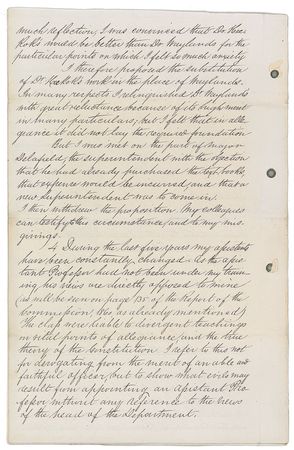 much reflection, I was convinced that Dr Hic-
kok's would be better than Dr Wayland's for the
particular points on which I felt so much anxiety
I therefore proposed the substitution
of Dr Hickok's work in the place of Wayland's.
In many respects I relinquished Dr Wayland's
with great reluctance because of its high merit
in many particulars; but I felt that in alle-
giance it did not lay the required foundation
But I was met on the part of Major
Delafield, the superintendent with the objection
that he had already purchased the text books,
that expense would be incurred and that a
new superintendent was to come in.
I then withdrew the proposition. My colleagues
can testify to this circumstance, and to my mis-
givings.
4 During the last five years my assistants
have been constantly changed. As the assis-
tant Professor had not been under my train-
ing his views are directly opposed to mine
(as will be seen on page 135 of the Report of the
Commission, &c as already mentioned.)
The class were liable to divergent teachings
in vital points of allegiance, and the true
theory of the Constitution. I refer to this not
for derogating from the merit of an able and
faithful officer, but to show what evils may
result from appointing an assistant Pro-
fessor without any reference to the views
of the head of the Department.